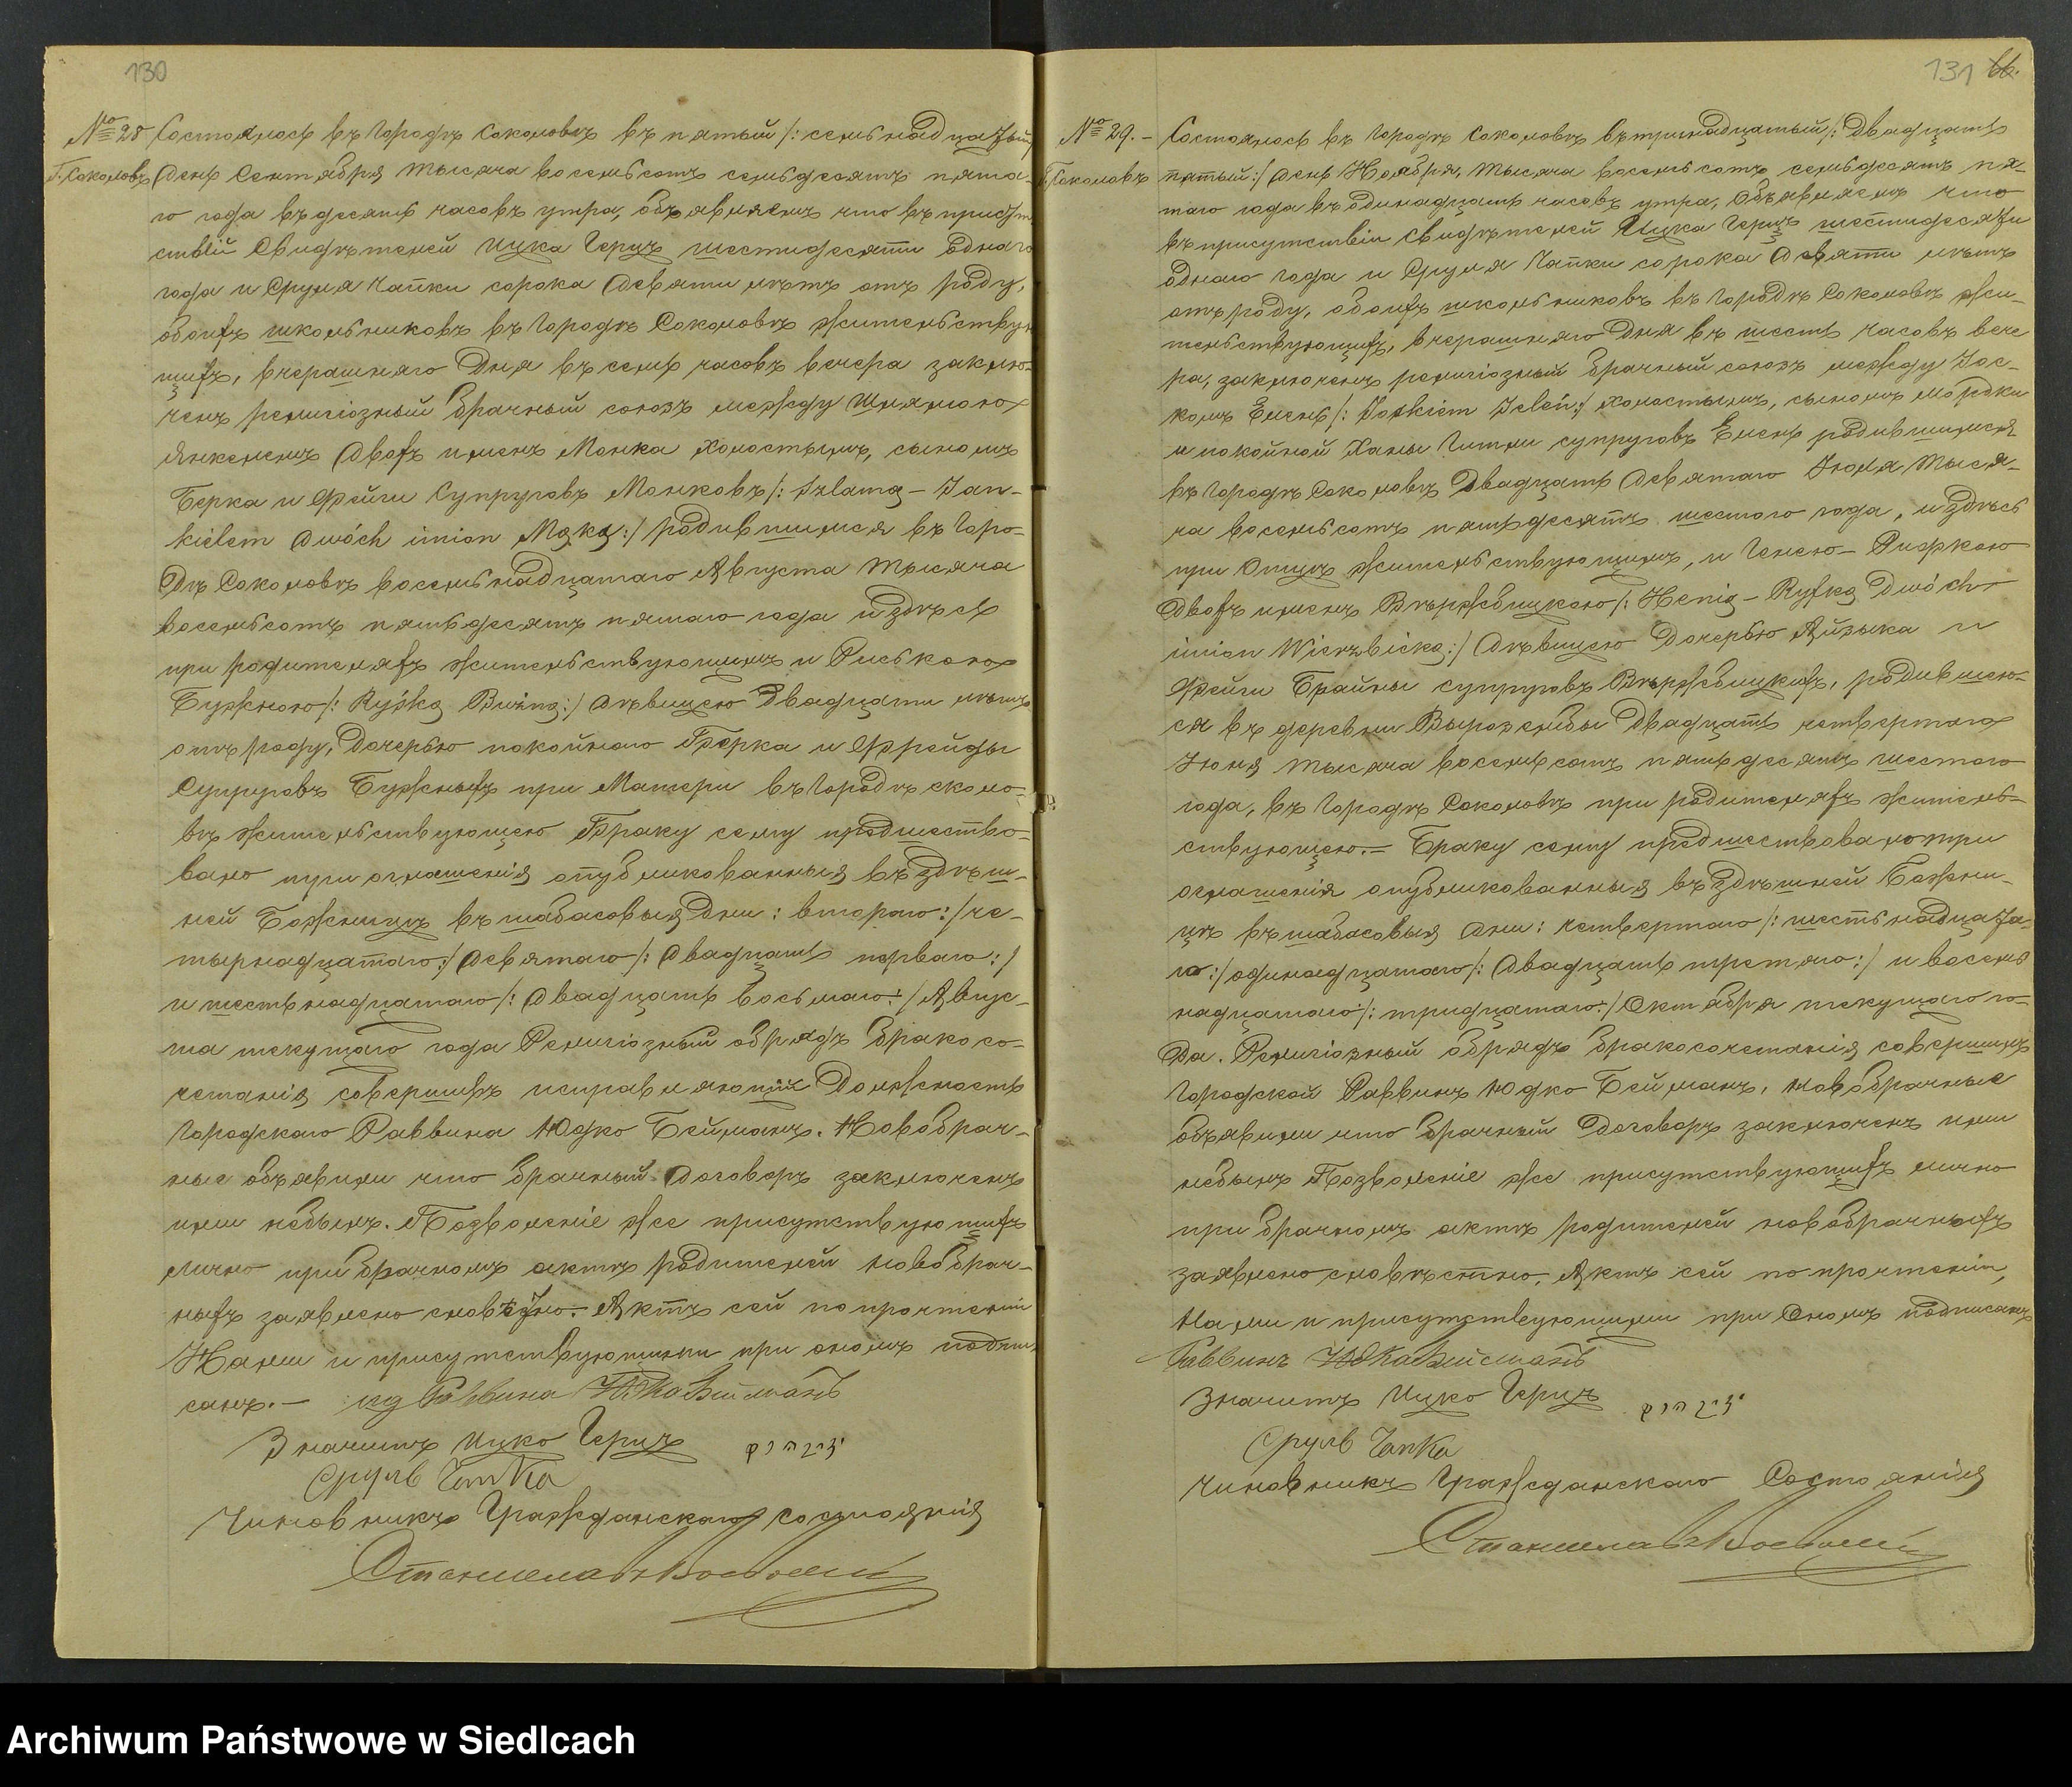 130
№ 28 Состоялось въ городѣ Соколовѣ въ пятый /: семьнадцатый
Г. Соколовъ день Сентября тысяча восемьсотъ семьдесятъ пята-
го года въ десять часовъ утра, объявляемъ что въ присут-
ствіи Свидѣтелей Ицка Герцъ шестидесяти одного
года и Сруля Чапки сорока девяти лѣтъ отъ роду,
обоихъ школьниковъ въ городѣ Соколовѣ жительствую-
щихъ, вчерашняго дня въ семь часовъ вечера заклю-
ченъ религіозный брачный союзъ между Шлямою
Янкелемъ двохъ именъ Монка холостымъ, сыномъ
Берка и Фейги Супруговъ Монковъ /: Szlamą - Jan-
kielem dwóch imion Mąką :/ родившимся въ горо-
дѣ Соколовѣ восемьнадцатаго Августа тысяча
восемьсотъ пятьдесятъ пятаго года и здѣсь
при родителяхъ жительствующимъ и Риською
Бужною /: Ryśką Bużną :/ дѣвицею двадцати лѣтъ
отъ роду, дочерью покойнаго Берка и Фрейды
Супруговъ Бужныхъ при Матери въ городѣ Соколо-
вѣ жительствующею Браку сему предшество-
вало три оглашенія опубликованныя въ здѣш-
ней Божницѣ въ шабасовыя дни: втораго :/ че-
тырнадцатаго :/ девятаго /: двадцать перваго :/
и шестьнадцатаго /: двадцать восьмаго :/ Авгус-
та текущаго года Религіозный обрядъ бракосо-
четанія совершивъ исправляющій Должность
Городскаго Раввина Юдко Бейманъ. Новобрач-
ные объявили что брачный договоръ заключенъ
ими небылъ. Позволеніе же присутствующихъ
лично при брачномъ актѣ родителей новобрач-
ныхъ заявлено словѣсно. Актъ сей по прочтеніи
Нами и присутствующими при ономъ подпи-
санъ. — ид Раввина Юдка Бейманъ
Значитъ Ицко Герцъ
Сруль Чапка
Чиновникъ Гражданскаго состоянія
131 66.
№ 29. - Состоялось въ городѣ Соколовѣ въ тринадцатый /: двадцать
Г. Соколовъ пятый :/ день Ноября, тысяча восемьсотъ семьдесятъ пя-
таго года въ одинадцать часовъ утра, объявляемъ что
въ присутствіи свидѣтелей Ицка Герцъ шестидесяти
одного года и Сруля Чапки сорока девяти лѣтъ
отъ роду, обоихъ школьниковъ въ городѣ Соколовѣ жи-
тельствующихъ, вчерашняго дня въ шесть часовъ вече
ра, заключенъ религіозный брачный союзъ между Іос-
комъ Еленъ /: Joskiem Jeleń :/ холостымъ, сыномъ Мордки
и покойной Ханы Гитли супруговъ Еленъ родившимся
въ городѣ Соколовѣ двадцать девятаго Іюля тыся-
ча восемьсотъ пятьдесятъ шестого года, и здѣсь
при отцѣ жительствующимъ, и Генею-Рифкою
двохъ именъ Вѣржбицкою /: Henią - Ryfką Dwóch
imion Wierzbicką :/ дѣвицею дочерью Айзыка и
Фейги Брайны супруговъ Вѣржбицкихъ, родившею-
ся въ деревни Вырозембы двадцать четвертаго
Іюня тысяча восемьсотъ пятьдесятъ шестого
года, въ городѣ Соколовѣ при родителяхъ житель-
ствующею. — Браку сему предшествовало три
оглашенія опубликованныя въ здѣшней Божни-
цѣ въ шабасовыя дни: четвертаго /: шестьнадцата-
го :/ одинадцатаго /: двадцать третяго :/ и восемь
надцатаго /: тридцатаго :/ Октября текущаго го-
да. Религіозный обрядъ бракосочетанія совершилъ
Городской Раввинъ Юдко Бейманъ, новобрачные
объявили что брачный договоръ заключенъ ими
небылъ Позволеніе же присутствующихъ лично
при брачномъ актѣ родителей новобрачныхъ
заявлено словѣстно. Актъ сей по прочтеніи,
Нами и присутствующими при ономъ подписанъ
Раввинъ Юдка Бейманъ
Значитъ Ицко Герцъ
Сруль Чапка
Чиновникъ Гражданскаго Состоянія
Archiwum Państwowe w Siedlcach